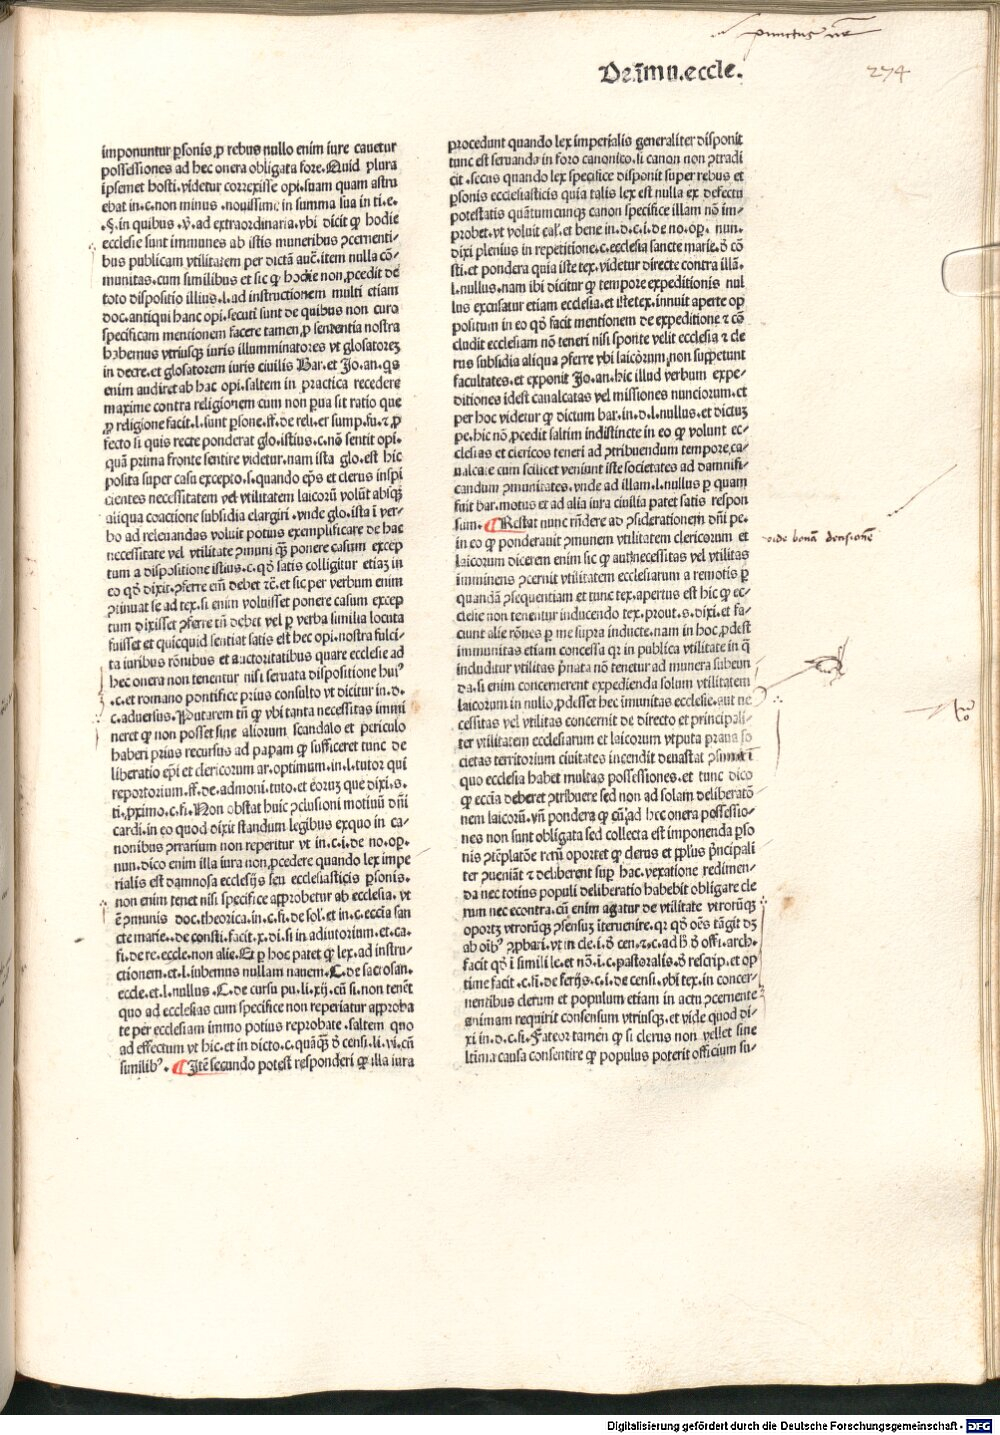 punctus
De.īmu.eccle.
274
imponuntur ꝑsonis ꝓ rebus nullo enim iure cauetur
possessiones ad hec onera obligata fore. Quid plura
ipsemet hosti. videtur correxisse opi. suam quam astru
ebat in .c. non minus . nouissime in summa sua in ti. e.
.§. in quibus .v. ad extraordinaria. vbi dicit ꝙ hodie
ecclesie sunt immunes ab istis muneribus ꝯcernenti-
bus publicam vtilitatem per dictā auc̄. item nulla cō-
munitas. cum similibus et sic ꝙ hodie non ꝓcedit de
toto dispositio illius .l. ad instructionem multi etiam
doc. antiqui hanc opi. secuti sunt de quibus non curo
specificam mentionem facere tamen ꝓ sententia nostra
habemus vtriusqꝫ iuris illumminatores vt glosatorez
in decre. et glosatorem iuris ciuilis Bar. et Jo. an. qs
enim audiret ab hac opi. saltem in practica recedere
maxime contra religionem cum non ꝑua sit ratio que
ꝓ religione facit .l. sunt ꝑsone .ff. de reli. et sump. fu. ⁊ ꝓ
fecto si quis recte ponderat glo. istius .c. nō sentit opi.
quā prima fronte sentire videtur. nam ista glo. est hic
posita super casu excepto .s. quando ep̄s et clerus inspi
cientes necessitatem vel vtilitatem laicorū volūt absqꝫ
aliqua coactione subsidia elargiri . vnde glo. ista ī ver-
bo ad releuandas voluit potius exemplificare de hac
necessitate vel vtilitate ꝯmuni qꝫ ponere casum excep
tum a dispositione istius .c. qđ satis colligitur etiaz in
eo qđ dixit. ꝯferre em̄ debet ⁊c. et sic per verbum enim
ꝯtinuat se ad tex. si enim voluisset ponere casum excep
tum dixisset ꝯferre tn̄ debet vel ꝑ verba similia locuta
fuisset et quicquid sentiat satis est hec opi. nostra fulci-
ta iuribus rōnibus et auctoritatibus quare ecclesie ad
hec onera non tenentur nisi seruata dispositione huiꝰ
.c. et romano pontifice prius consulto vt dicitur in .d.
c. aduersus. Putarem tn̄ ꝙ vbi tanta necessitas immi
neret ꝙ non posset sine aliorum scandalo et periculo
haberi prius recursus ad papam ꝙ sufficeret tunc de
liberatio ep̄i et clericorum ar. optimum .in .l. tutor qui
reportorium .ff. de. admoni. tuto. et eorum que dixi .s.
ti. ꝓximo .c. fi. Non obstat huic ꝯclusioni motiuū dn̄i
cardi. in eo quod dixit standum legibus exquo in ca-
nonibus ꝯrrarium non reperitur vt in .c. i. de no. op.
nun. dico enim illa iura non ꝓcedere quando lex impe
rialis est damnosa ecclesijs seu ecclesiasticis ꝑsonis.
non enim tenet nisi specifice approbetur ab ecclesia. vt
ē ꝯmunis doc. theorica .in .c. fi. de sol. et in .c. eccīa san
cte marie. .de consti. facit .x. di. si in adiutorium. et ca.
fi. de re. eccle. non alie. Et ꝑ hoc patet ꝙ lex. ad instru-
ctionem. et .l. iubemus nullam nauem. C. de sacrosan.
eccle. et .l. nullus . C. de cursu pu. li. xij. cū si. non tenēt
quo ad ecclesias cum specifice non reperiatur approba
te per ecclesiam immo potius reprobate . saltem quo
ad effectum vt hic. et in dicto .c. quāqꝫ đ censi. li. vi. cū
similibꝰ. ¶ Itē secundo potest responderi ꝙ illa iura
procedunt quando lex imperialis generaliter disponit
tunc est seruanda in foro canonico. si canon non ꝯtradi
cit . secus quando lex specifice disponit super rebus et
ꝑsonis ecclesiasticis quia talis lex est nulla ex defectu
potestatis quātumcunqꝫ canon specifice illam nō im-
probet. vt voluit cal̄. et bene in .d. c. i. de no. op. nun.
dixi plenius in repetitione .c. ecclesia sancte marie. đ cō
sti. et pondera quia iste tex. videtur directe contra illā.
l. nullus. nam ibi dicitur ꝙ tempore expeditionis nul
lus excusatur etiam ecclesia. et iste tex. innuit aperte op
politum in eo qđ facit mentionem de expeditione ⁊ cō
cludit ecclesiam nō teneri nisi sponte velit ecclesia ⁊ cle
rus subsidia aliqua ꝯferre vbi laicorum non suppetunt
facultates. et exponit Jo. an. hic illud verbum expe-
ditiones idest caualcatas vel missiones nunciorum. et
per hoc videtur ꝙ dictum bar. in .d. l. nullus. et dictuz
pe. hic nō ꝓcedit saltim indistincte in eo ꝙ volunt ec-
clesias et clericos teneri ad ꝯtribuendum tempore ca-
ualcate cum scilicet veniunt iste societates ad damnifi-
candum ꝯmunitates. vnde ad illam .l. nullus ꝑ quam
fuit bar. motus et ad alia iura ciuilia patet satis respon
sum. ¶ Restat nunc rn̄dere ad ꝯsiderationem dn̄i pe.
in eo ꝙ ponderauit ꝯmunem vtilitatem clericorum et
laicorum dicerem enim sic ꝙ aut necessitas vel vtilitas
imminens ꝯcernit vtilitatem ecclesiarum a remotis ꝑ
quandā ꝯsequentiam et tunc tex. apertus est hic ꝙ ec-
clesie non tenentur inducendo tex. prout .s. dixi. et fa-
ciunt alie rōnes ꝑ me supra inducte. nam in hoc ꝓdest
immunitas etiam concessa qꝛ in publica vtilitate in q̄
induditur vtilitas p̄nata nō tenetur ad munera subeun
da. si enim concernerent expedienda solum vtilitatem
laicorum in nullo ꝓdesset hec imunitas ecclesie. aut ne
cessitas vel vtilitas concernit de directo et principali-
ter vtilitatem ecclesiarum et laicorum vtputa praua so
cietas territorium ciuitates incendit deuastat ꝯsumit ī
quo ecclesia habet multas possessiones. et tunc dico
ꝙ eccīa deberet ꝯtribuere sed non ad solam deliberatō
nem laicorū. vn̄ pondera ꝙ cū ad hec onera possessio-
nes non sunt obligata sed collecta est imponenda ꝑso
nis ꝯtēplatōe rerū oportet ꝙ clerus et pplus p̄ncipali
ter ꝯueniāt ⁊ deliberent sup̄ hac. vexatione redimen-
da nec totius populi deliberatio habebit obligare cle
rum nec econtra. cū enim agatur de vtilitate vtrorūqꝫ
oportꝫ vtrorūqꝫ ꝯsensuz īteruenire. qꝛ qđ oēs tāgit dꝫ
ab oībꝰ ꝯpbari. vt in cle. i. đ cen. ⁊ .c. ad h̄ đ offi. arch.
facit qđ ī simili lc. et nō. i. c. pastoralis. đ rescrip. et op
time facit .c. fi. de ferijs. c. i. de censi. vbi tex. in concer-
nentibus clerum et populum etiam in actu ꝯcernente
animam requirit consensum vtriusqꝫ. et vide quod di-
xi in .d. c. fi. Fateor tamen ꝙ si clerus non vellet sine
ltima causa consentire ꝙ populus poterit officium su-
vide bonā decisionē
Digitalisierung gefördert durch die Deutsche Forschungsgemeinschaft - DFG